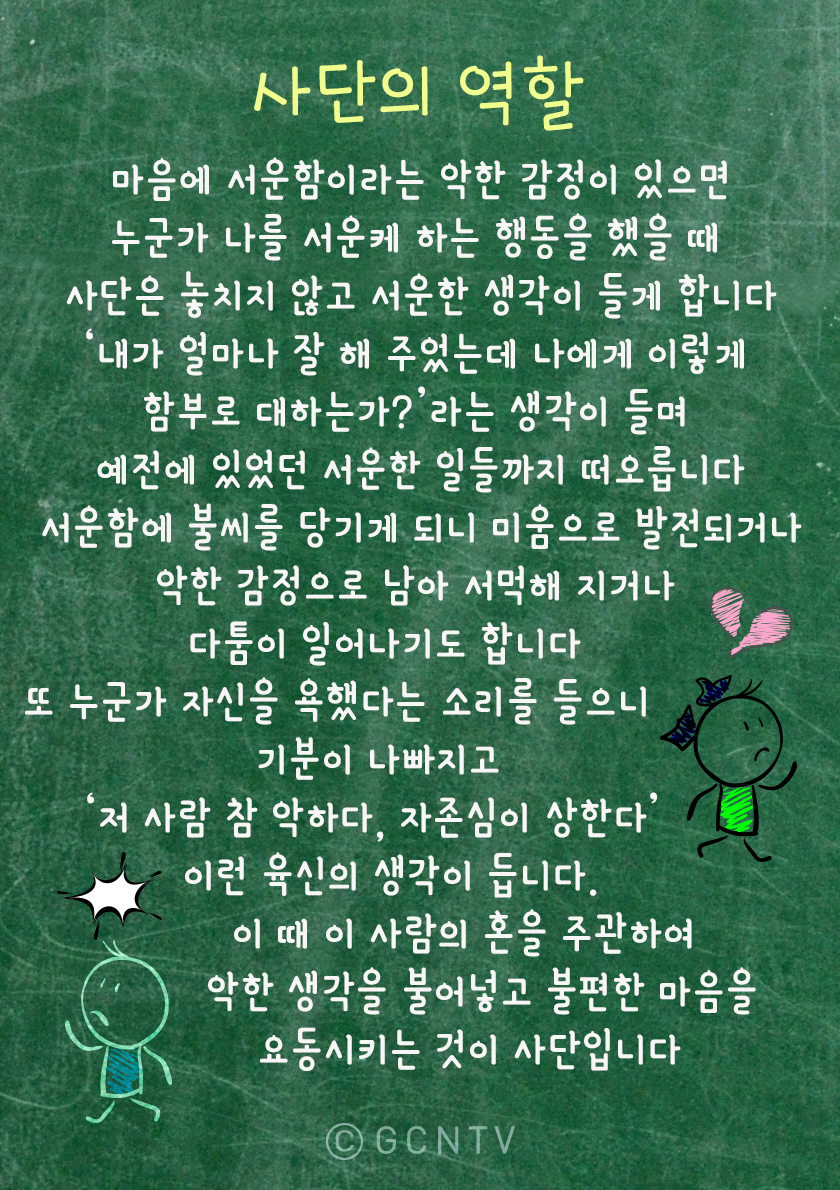 사단의 역할
마음에 서운함이라는 악한 감정이 있으면
누군가 나를 서운케 하는 행동을 했을 때
사단은 놓치지 않고 서운한 생각이 들게 합니다
‘내가 얼마나 잘 해 주었는데 나에게 이렇게
함부로 대하는가?’라는 생각이 들며
예전에 있었던 서운한 일들까지 떠오릅니다
서운함에 불씨를 당기게 되니 미움으로 발전되거나
악한 감정으로 남아 서먹해 지거나
다툼이 일어나기도 합니다
또 누군가 자신을 욕했다는 소리를 들으니
기분이 나빠지고
‘저 사람 참 악하다, 자존심이 상한다’
이런 육신의 생각이 듭니다.
이 때 이 사람의 혼을 주관하여
악한 생각을 불어넣고 불편한 마음을
요동시키는 것이 사단입니다
ⓒGCNTV